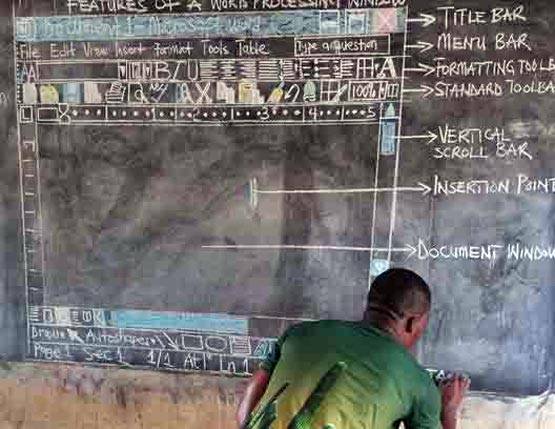 FEATURES OF A WORD PROCESSING WINDOW
Document 1 - Microsoft Word
TITLE BAR
File Edit View Insert Format Tools Table
Type a question
MENU BAR
AA B I U A
FORMATTING TOOLBA
100%
STANDARD TOOLBA
VERTICAL
SCROLL BAR
INSERTION POINT
DOCUMENT WINDOW
Draw Autoshapes
Page 1 Sec 1 1/1 At 1" ln 1